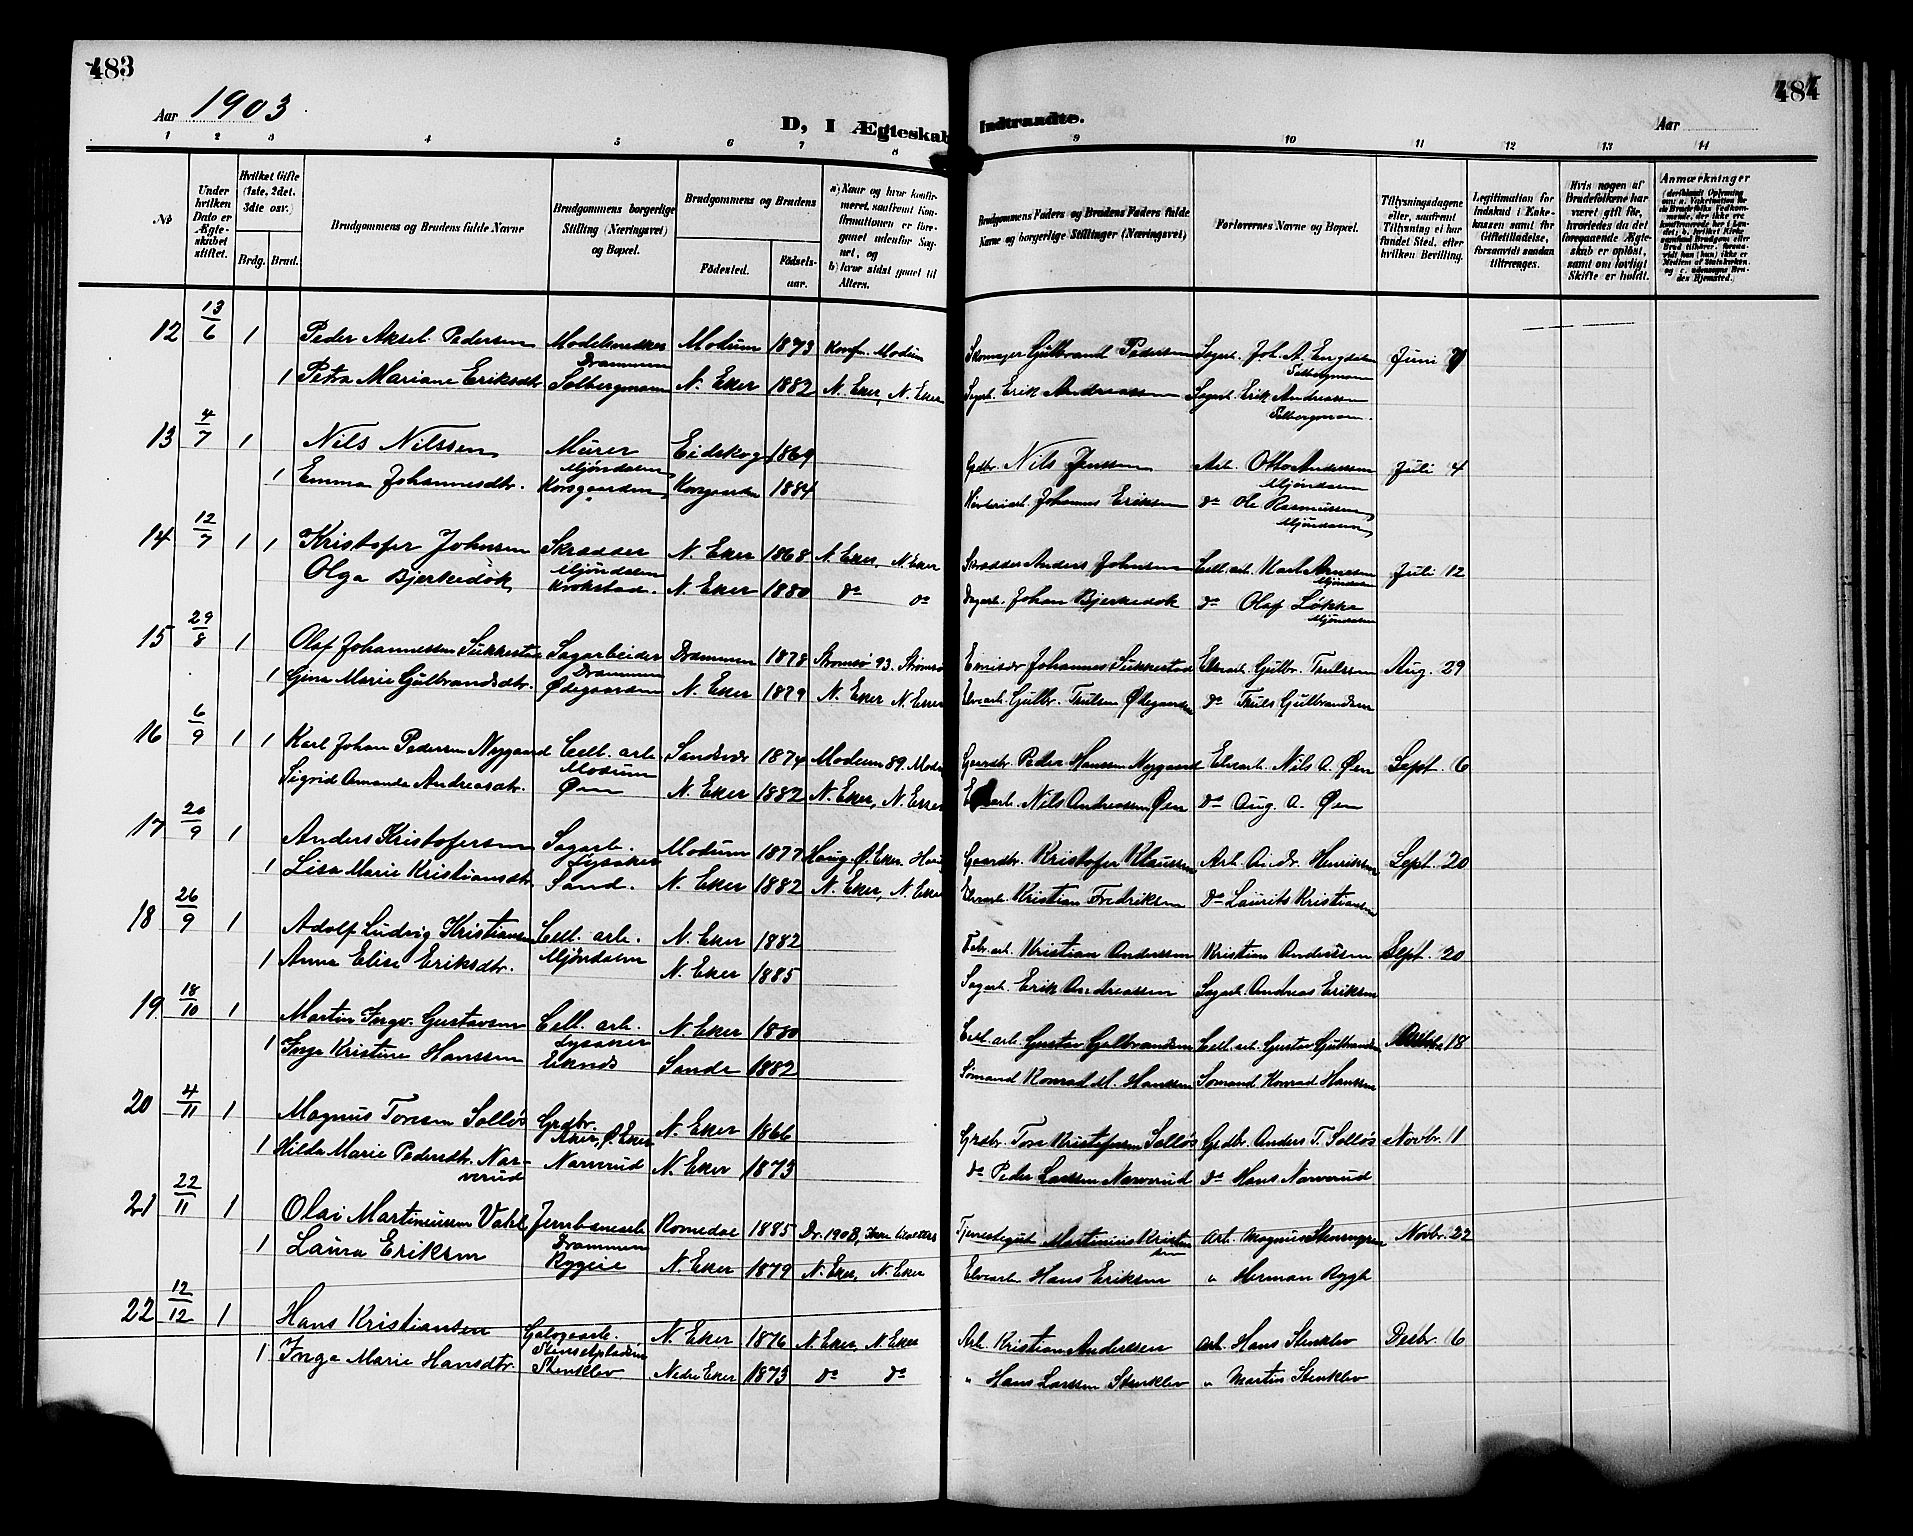 483
484
Aar 1903
D, I Ægteskab Indtraadte.
Aar
1 2 3 4 5 6 7 8 9 10 11 12 13 14
No
Under hvilken Dato er Ægteskabet stiftet.
Hvilket Gifte (1ste, 2det, 3dte osv.)
Brdg. Brud.
Brudgommens og Brudens fulde Navne
Brudgommens borgerlige Stilling (Næringsvei) og Bopæl.
Brudgommens og Brudens
Födested. Födselsaar.
a) Naar og hvor konfirmeret, saafremt Konfirmationen er foregaaet udenfor Sognet, og
b) hvor sidst gaaet til Alters.
Brudgommens Faders og Brudens Faders fulde Navne og borgerlige Stillinger (Næringsvei)
Forlovernes Navne og Bopæl.
Tillysningsdagene eller, saafremt Tillysning ei har fundet Sted, efter hvilken Bevilling.
Legitimation for Indskud i Enkekassen samt for Giftetilladelse, forsaavidt saadan tiltrænges.
Hvis nogen af Brudefolkene har været gift för, hvorledes da det foregaaende Ægteskab er oplöst, samt om lovligt Skifte er holdt.
Anmærkninger
12 13/6 1 Peder Aksel Pedersen Modelsnedker Modum 1873 Konf. Modum Skomager Gulbrand Pedersen Sagarb. Joh. A. Engdalen Juni 7
Drammen Solbergmoen
1 Petra Mariane Eriksdtr. Solbergmoen N. Eker 1882 N. Eker, N. Eker Sagarb. Erik Andreassen Sagarb. Erik Andreassen
Solbergmoen
13 4/7 1 Nils Nilssen Murer Eidskog 1869 Grdbr. Nils Jenssen Arb. Otto Andersen Juli 4
Mjöndalen Mjöndalen
1 Emma Johannesdtr. Korsgaarden Korsgaarden 1884 Johannes Eriksen do Ole Rasmussen
Mjöndalen
14 12/7 1 1 Kristofer Johnsen Skrædder N. Eker 1868 N. Eker, N. Eker Skrædder Anders Johnsen Cell. arb. Karl Arnesen Juli 12
Mjöndalen Mjöndalen
Olga Bjerkedok Krokstad. N. Eker 1880 do do Dagarb. Johan Bjerkedok do Olaf Løkke
Mjöndalen
15 29/8 1 Olaf Johannessen Sukkestad Sagarbeider Drammen 1878 Strømsø 93. Strømsø Johannes Sukkestad Elvearb. Gulbr. Trulssen Aug. 29
Drammen
1 Gina Marie Gulbrandsdtr. Ødegaarden N. Eker 1879 N. Eker N. Eker Elvearb. Gulbr. Trulsen Ødegaarden do Truls Gulbrandsen
16 6/9 1 1 Karl Johan Pedersen Nygaard Cell. arb. Sandsvær 1874 Modum 89. Modum Gaardbr. Peder Hanssen Nygaard Elvearb. Nils A. Øen Sept. 6
Modum
Sigrid Amanda Andreasdtr. Øen N. Eker 1882 N. Eker, N. Eker Elvearb. Nils Andreassen Øen do Aug. A. Øen
17 20/9 1 Anders Kristofersen Sagarb. Modum 1877 Haug. Ø. Eker. Haug Gaardbr. Kristofer Klaussen Arb. Henriksen Sept. 20
Lysaker
1 Lisa Marie Kristiansdtr. Sand. N. Eker 1882 N. Eker, N. Eker Elvearb. Kristian Fredriksen do Laurits Kristiansen
18 26/9 1 Adolf Ludvig Kristiansen Cell. arb. N. Eker 1882 Febr. arb. Kristian Andersen Kristian Andersen Sept. 20
1 Anna Elise Eriksdtr. Mjöndalen N. Eker 1885 Sagarb. Erik Andreassen Sagarb. Andreas Eriksen
19 18/10 1 Martin Ingv. Gustavsen Cell. arb. N. Eker 1880 Cell. arb. Gustav Gulbrandsen Cell. arb. Gustav Gulbrandsen 18
Lysaker
1 Inga Kristine Hanssen Eknes Sande 1882 Sömand Konrad M. Hanssen Sömand Konrad Hanssen
20 4/11 1 Magnus Toresen Solløs Grdbr. N. Eker 1866 Grdbr. Tore Kristofersen Solløs Grdbr. Anders T. Solløs Novbr. 1
Aker, Ø. Eker
1 Hilda Marie Pedersdtr. Narverud Narverud N. Eker 1873 do Peder Larssen Narverud do Hans Narverud
21 22/11 1 Olai Martinussen Vahl Jernbanearb. Romedal 1885 Dr. 1902, Martinius Kristiansen Arb. Magnus Novbr. 22
Drammen
1 Laura Eriksen Ryggeie N. Eker 1879 N. Eker, N. Eker Elvearb. Hans Eriksen " Herman Rygh
22 12/12 1 Hans Kristiansen N. Eker 1876 N. Eker, N. Eker Arb. Kristian Andersen Arb. Hans Stenklev Decbr. 6
1 Inga Marie Hansdtr. Stenklev Nedre Eker 1873 do do " Hans Larssen Stenklev " Martin Stenklev